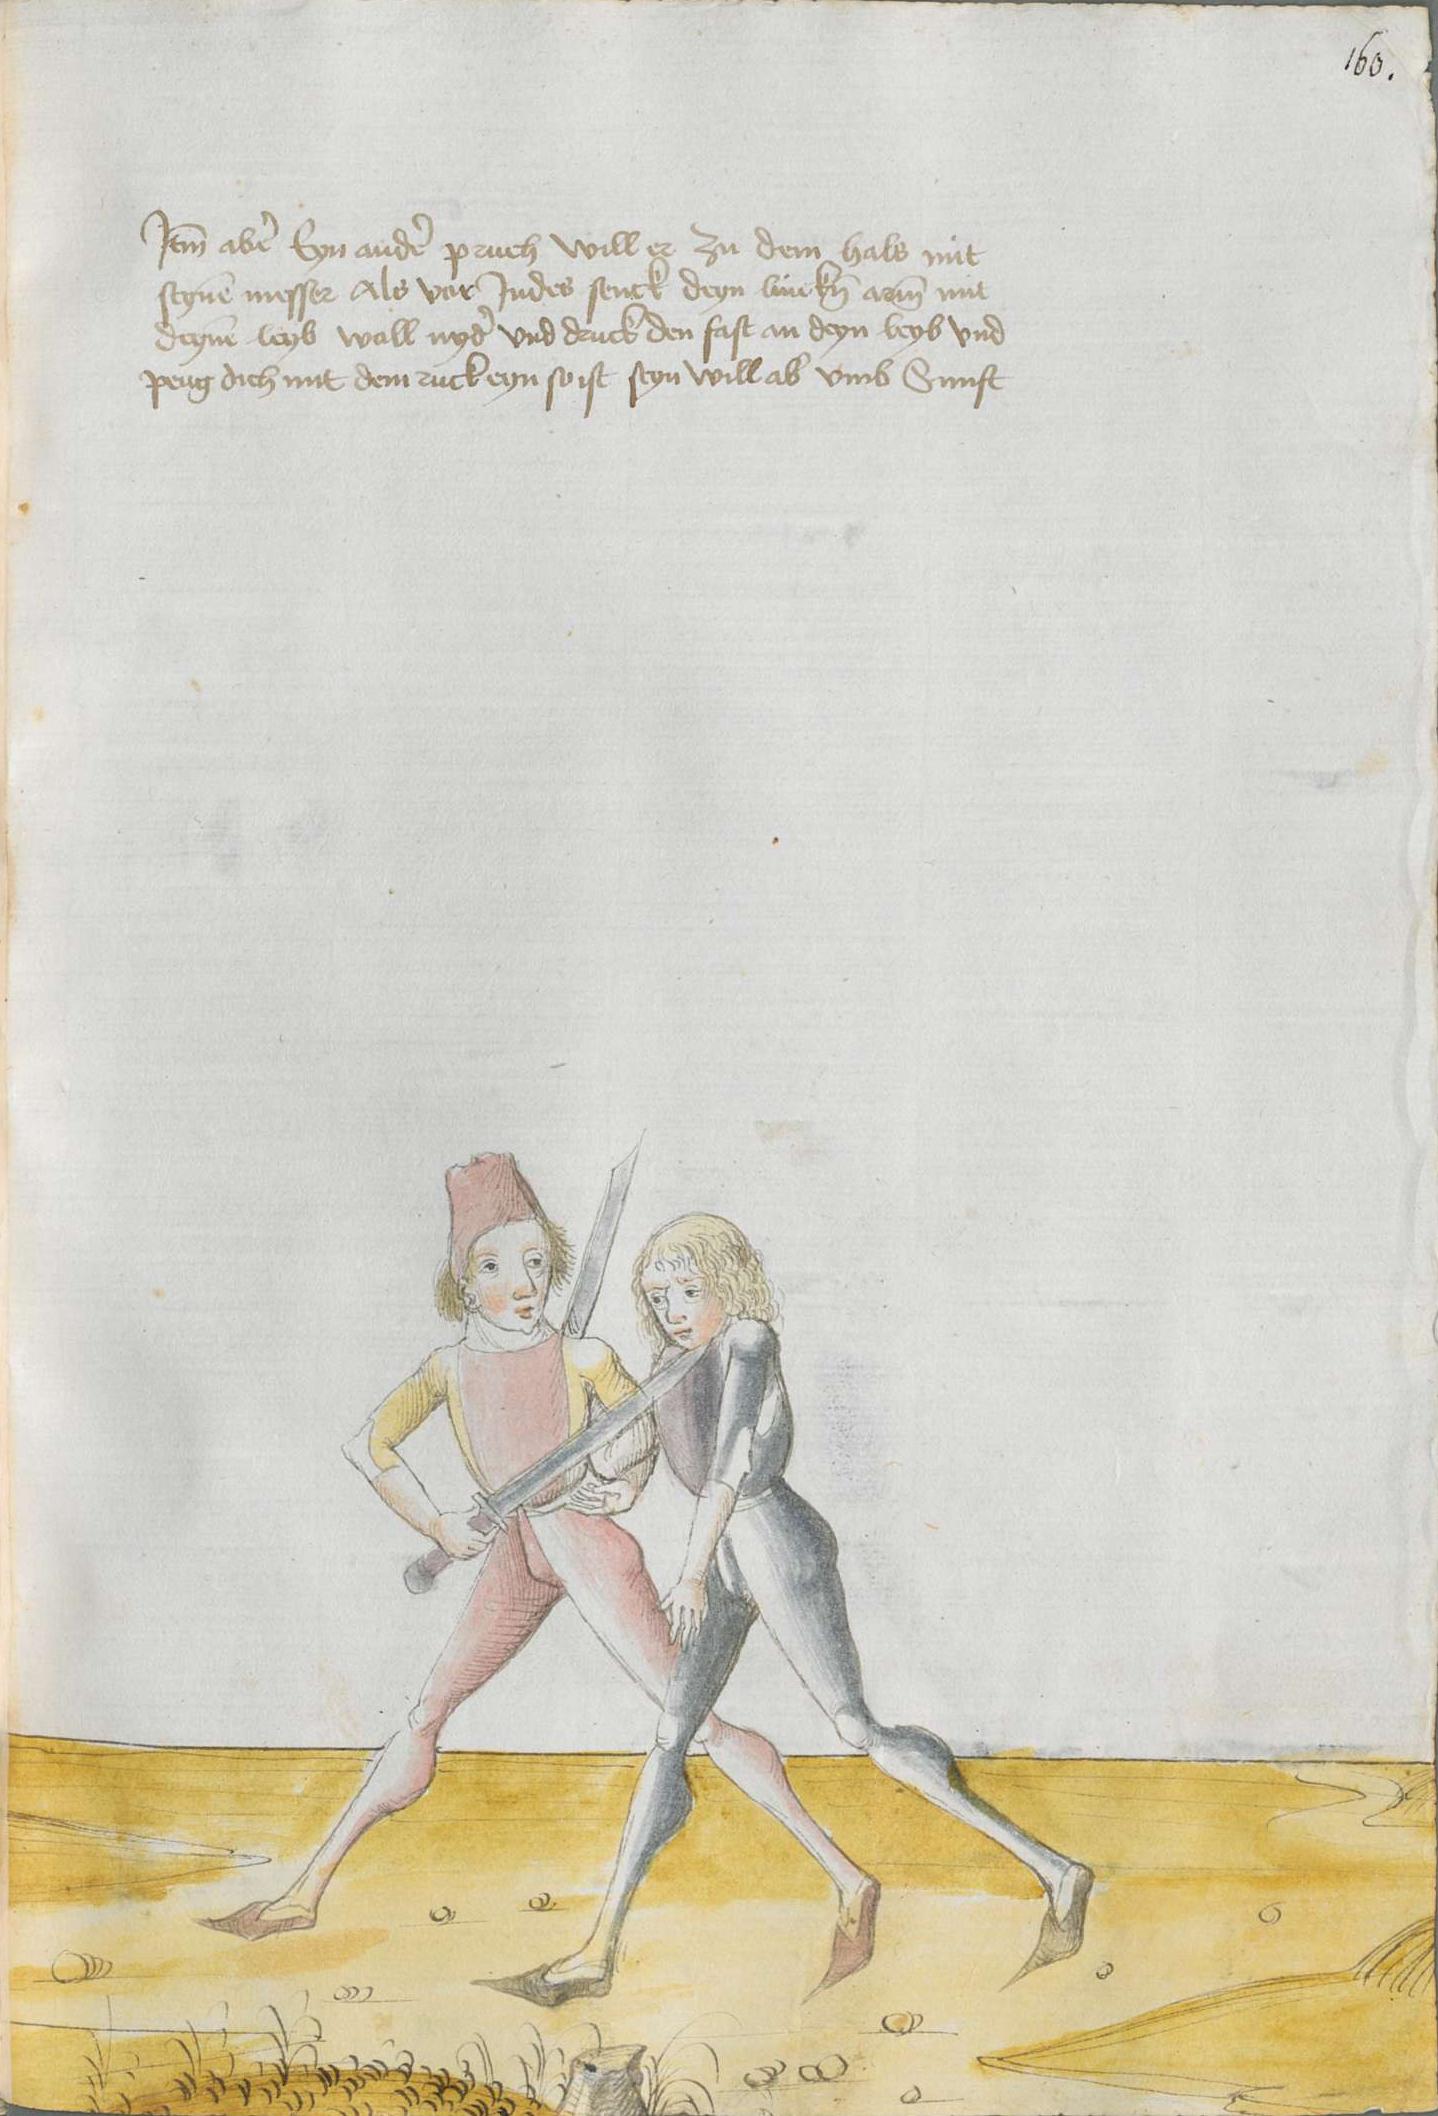 160.
Itm̄ aber̄ Eyn ander̄ pruch will er zu dem hals mit
seynē messer Als vor Indes senck deyn linckn̄ arm̄ mit
deynē leyb woll nyder̄ vnd druck den fast an deyn leyb vnd
peug dich mit dem ruck eyn so ist seyn will ab vmb Sunst